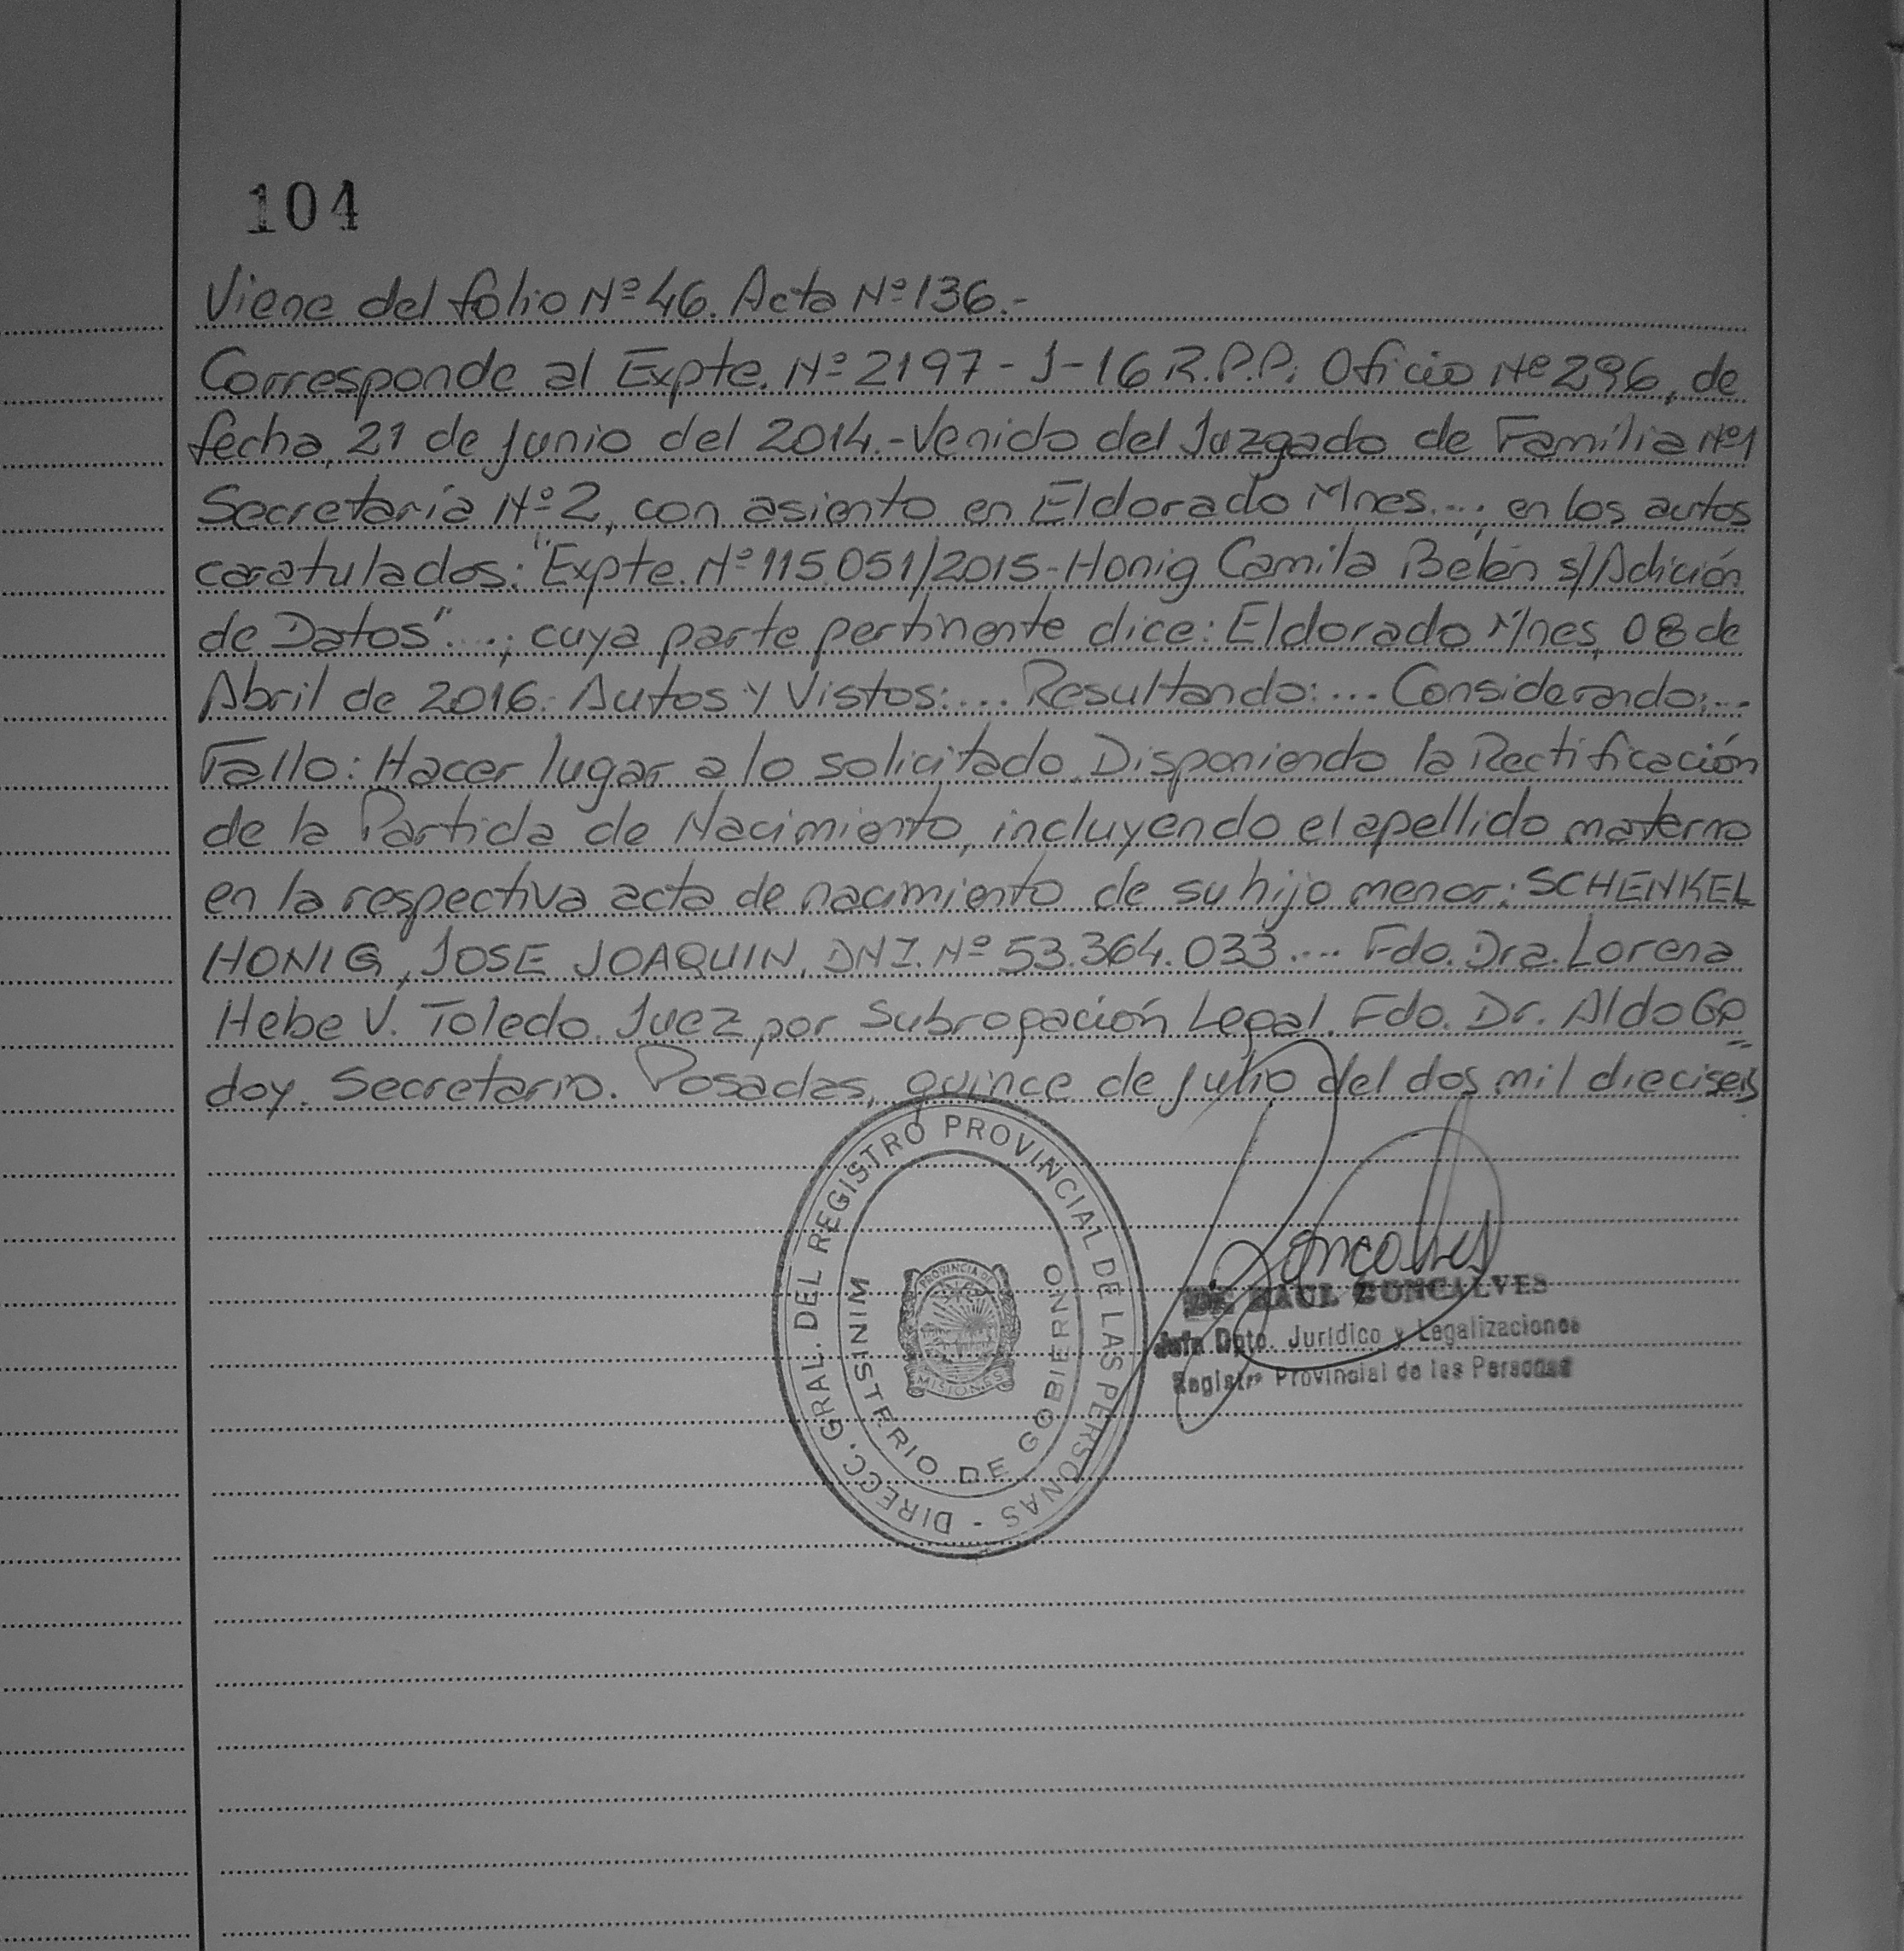 104
Viene del folio Nº 46. Acta Nº 136.-
Corresponde al Expte. Nº 2197 - J - 16 R.P.P. Oficio Nº 296, de
fecha, 21 de Junio del 2014.- Venido del Juzgado de Familia Nº1
Secretaría Nº 2, con asiento en Eldorado Mnes...., en los autos
caratulados: "Expte. Nº 115.051/2015- Honig Camila Belén s/Adición
de Datos"....; cuya parte pertinente dice: Eldorado Mnes, 08 de
Abril de 2016. Autos y Vistos:.... Resultando:.... Considerando:...
Fallo: Hacer lugar a lo solicitado. Disponiendo la Rectificación
de la Partida de Nacimiento, incluyendo el apellido materno
en la respectiva acta de nacimiento de su hijo menor: SCHENKEL
HONIG, JOSE JOAQUIN. DNI. Nº 53.364.033.... Fdo. Dra. Lorena
Hebe V. Toledo. Juez por Subrogación Legal. Fdo. Dr. Aldo Go=
doy. Secretario. Posadas, quince de Julio del dos mil dieciseis
DIRECC. GRAL. DEL REGISTRO PROVINCIAL DE LAS PERSONAS -
MINISTERIO DE GOBIERNO
PROVINCIA DE
MISIONES
Goncalves
Dr. RAUL GONCALVES
Jefe Dpto. Jurídico y Legalizaciones
Registro Provincial de las Personas